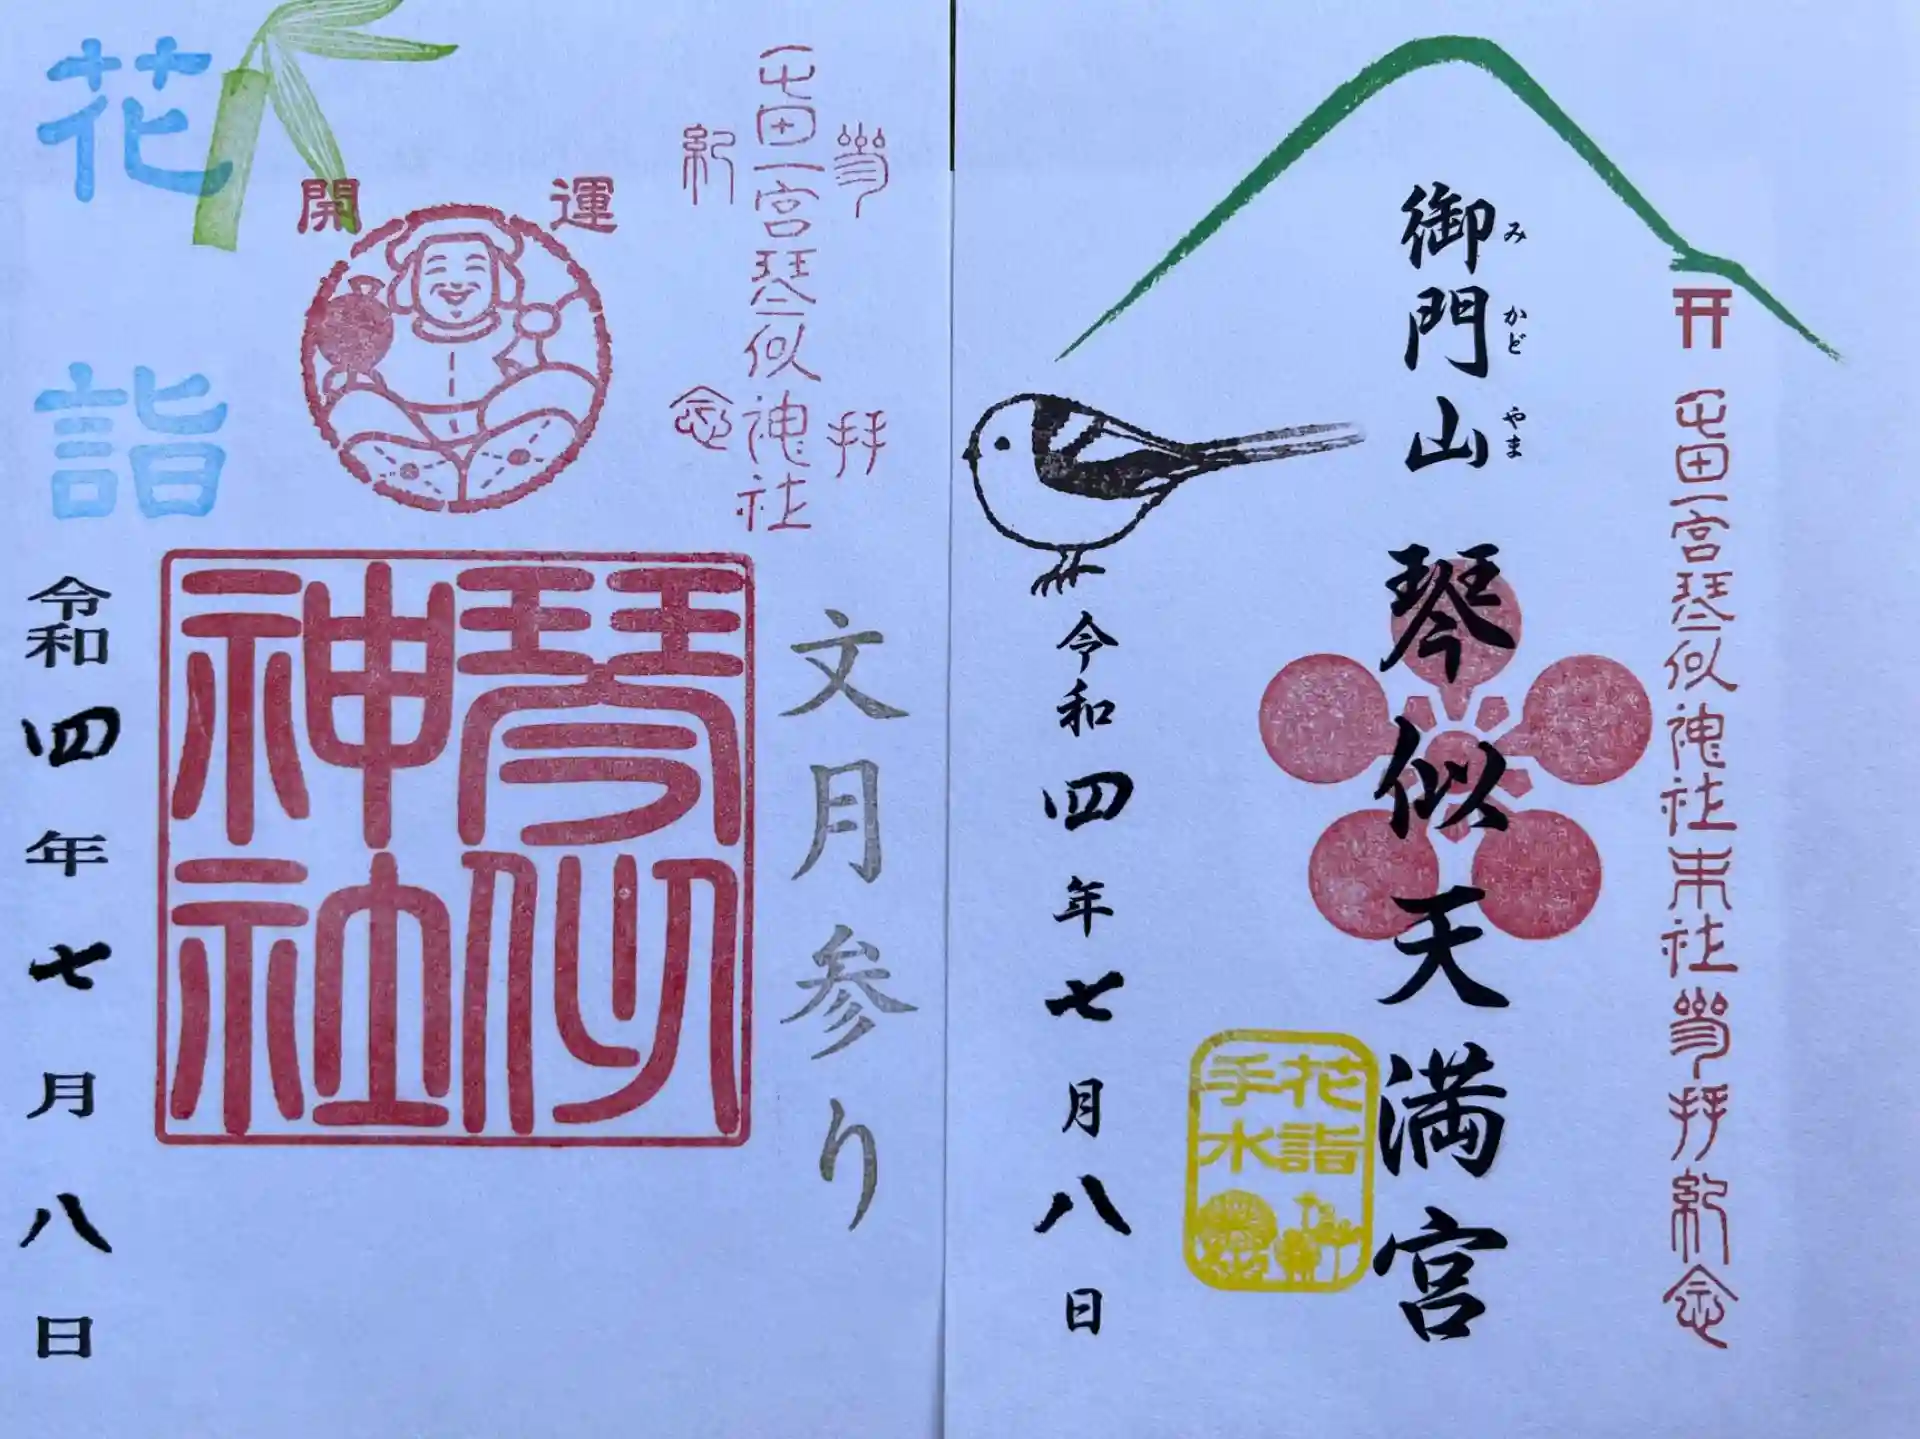 御門山
みかどやま
琴似天満宮
屯田一宮琴似神社末社参拝紀念
令和四年七月八日
花詣
手水
屯田一宮琴似神社
参拝
紀念
文月参り
開運
琴似
神社
花詣
令和四年七月八日